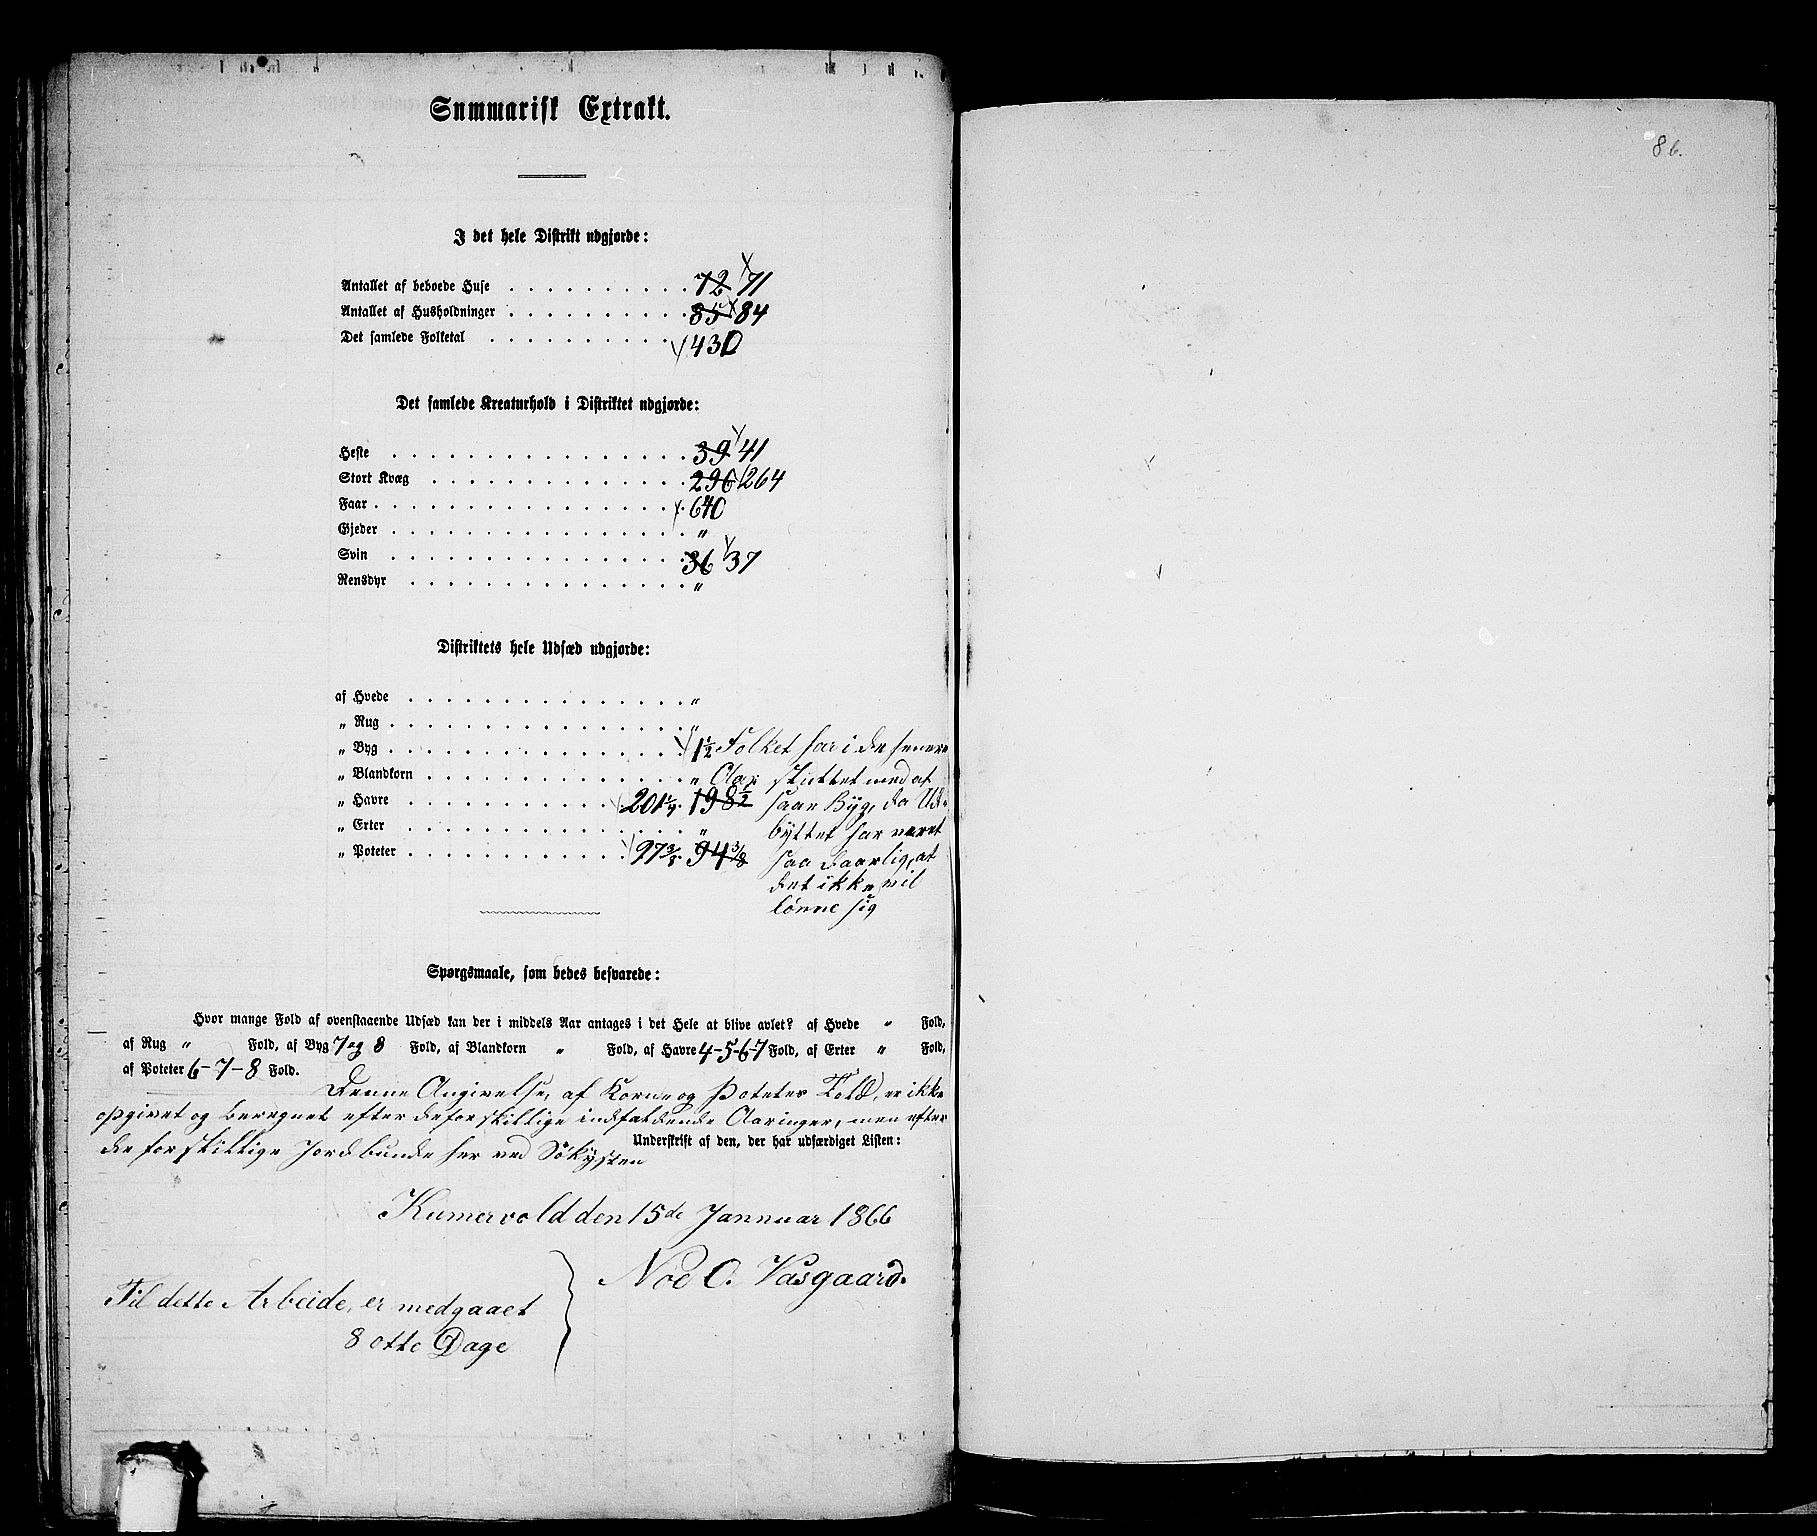 Summarisk Extrakt.
I det hele Distrikt udgjorde:
Antallet af beboede Huse . . . . . . . . . . 72 71
Antallet af Husholdninger . . . . . . . . . . 85 84
Det samlede Folketal . . . . . . . . . . 430
Det samlede Kreaturhold i Distriktet udgjorde:
Heste . . . . . . . . . . 39 41
Stort Kvæg . . . . . . . . . . 296 264
Faar . . . . . . . . . . 640
Gjeder . . . . . . . . . . "
Svin . . . . . . . . . . 36 37
Rensdyr . . . . . . . . . . "
Distriktets hele Udsæd udgjorde:
af Hvede . . . . . . . . . . "
" Rug . . . . . . . . . . "
" Byg . . . . . . . . . . 1 1/2 Folket har i de senere
" Blandkorn . . . . . . . . . . " Aar sluttet med at
" Havre . . . . . . . . . . 201 1/4. 198 1/2 saae Byg, da Ud-
" Erter . . . . . . . . . . " byttet har været
" Poteter . . . . . . . . . . 97 3/8. 94 3/8 saa daarlig, at
det ikke vil
lönne sig
Spørgsmaale, som bedes besvarede:
Hvor mange Fold af ovenstaaende Udsæd kan der i middels Aar antages i det Hele at blive avlet? af Hvede " Fold,
af Rug " Fold, af Byg 7 og 8 Fold, af Blandkorn " Fold, af Havre 4-5-6-7 Fold, af Erter " Fold,
af Poteter 6-7-8 Fold.
Denne Angivelse, af Korn og Poteter Fold, er ikke
opgivet og beregnet efter de forskillige indfaldende Aaringer, men efter
de forskillige Jordbunde her ved Søkysten
Underskrift af den, der har udfærdiget Listen:
Kumervold den 15de Jannuar 1866
Noe O. Vasgaard.
Til dette Arbeide, er medgaaet
8 otte Dage
86.